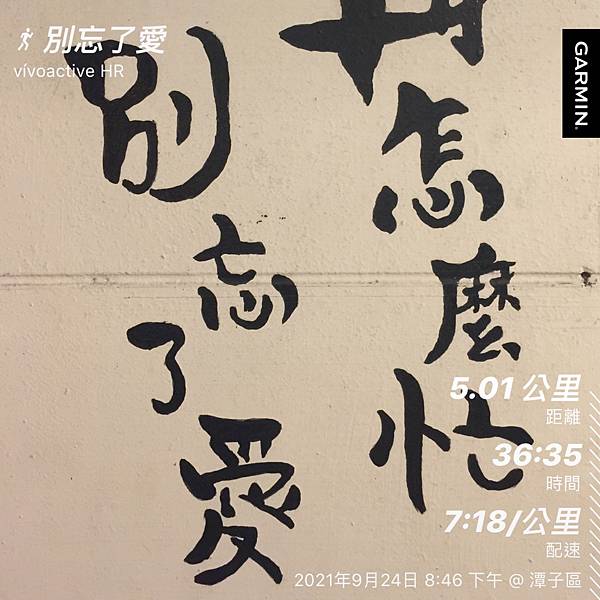 別忘了愛
vívoactive HR
GARMIN.
怎麼忙
別忘了愛
5.01 公里
距離
36:35
時間
7:18/公里
配速
2021年9月24日 8:46 下午 @ 潭子區